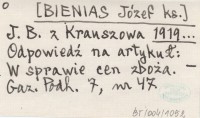 [BIENIAS Józef ks.]
J. B. z Krauszowa 1919...
Odpowiedź na artykuł:
W sprawie cen zboża.
Gaz. Podh. 7, nr 47